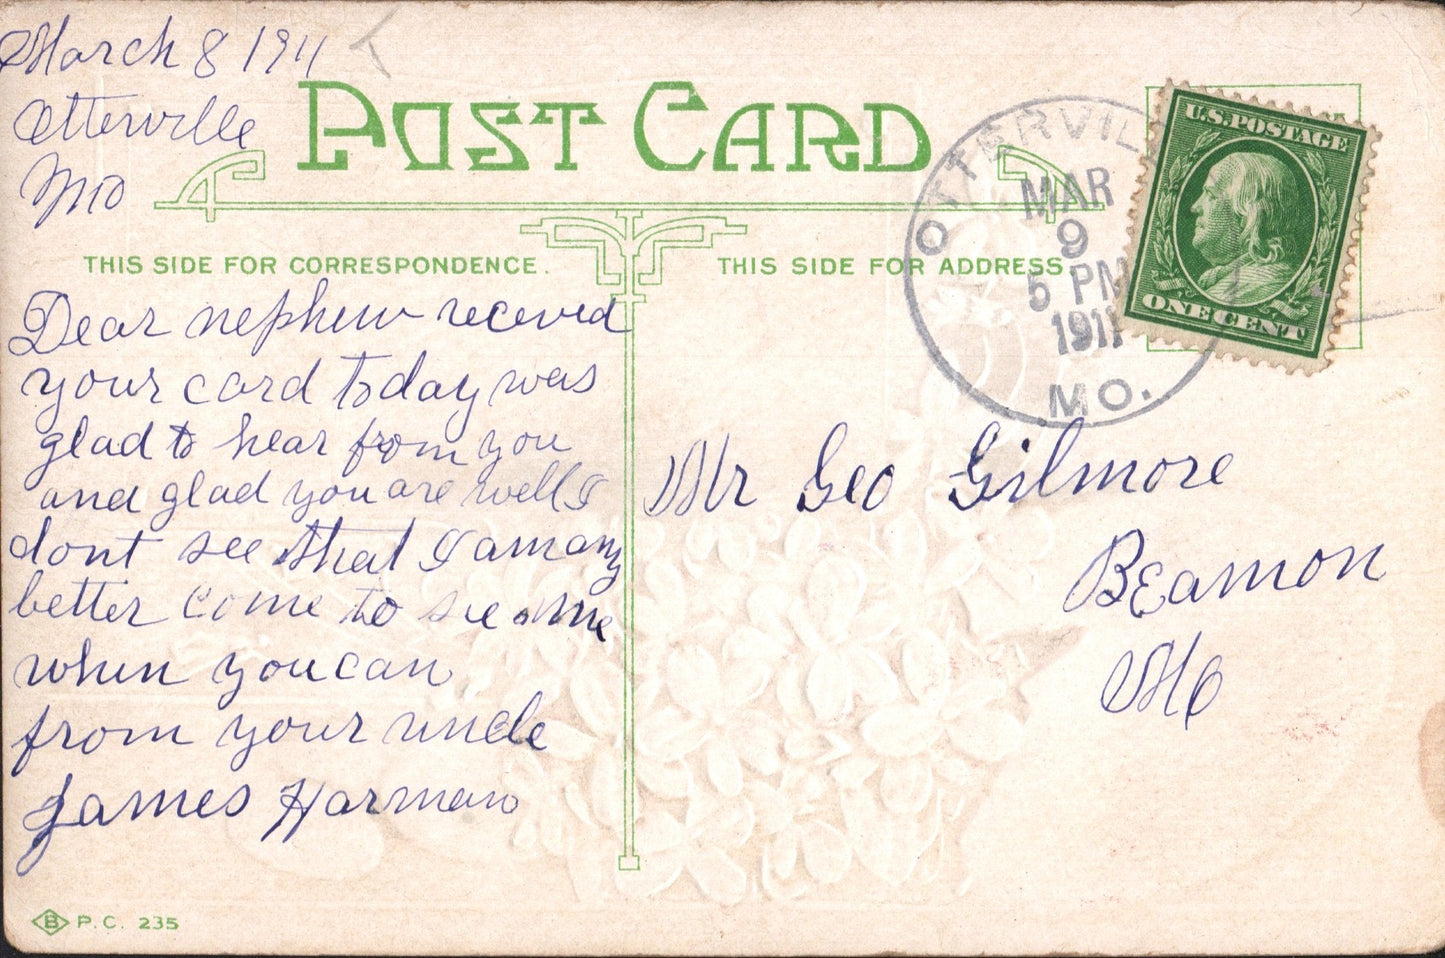 March 8 1911
Otterville
Mo
POST CARD
THIS SIDE FOR CORRESPONDENCE.
THIS SIDE FOR ADDRESS.
OTTERVIL
MAR
9
5 PM
1911
MO.
U.S. POSTAGE
ONE CENT
Dear nephew receved
your card today was
glad to hear from you
and glad you are well I
dont see that I am any
better come to see me
when you can
from your uncle
James Harman
Mr Geo Gilmore
Beamon
Mo
B P.C. 235